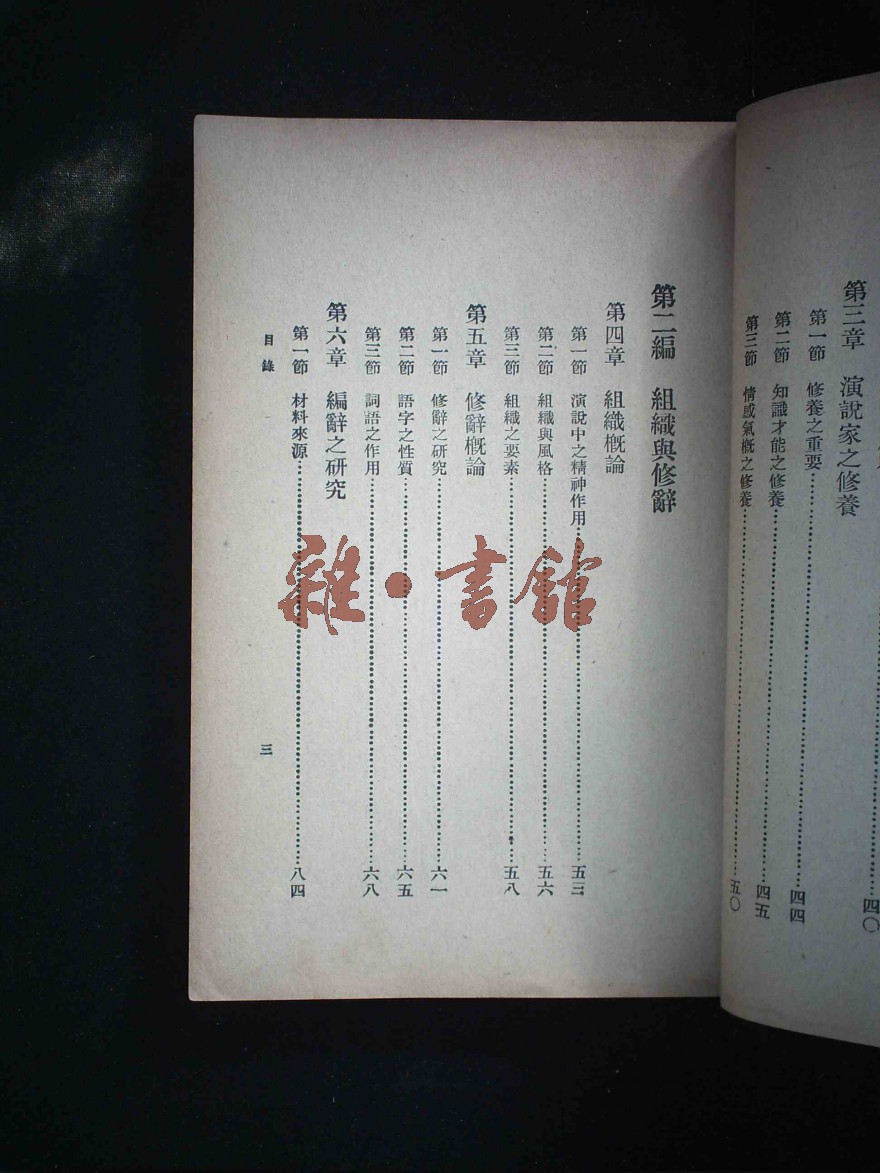 四〇
第三章　演說家之修養
第一節　修養之重要……四四
第二節　知識才能之修養……四五
第三節　情感氣概之修養……五〇
第二編　組織與修辭
第四章　組織概論
第一節　演說中之精神作用……五三
第二節　組織與風格……五六
第三節　組織之要素……五八
第五章　修辭概論
第一節　修辭之研究……六一
第二節　語字之性質……六五
第三節　詞語之作用……六八
第六章　編辭之研究
第一節　材料來源……八四
目錄　三
雜·書館